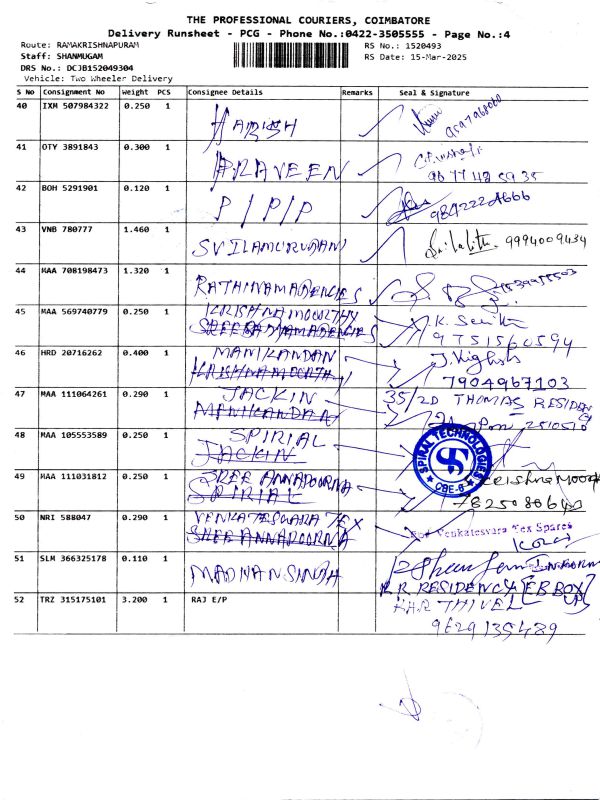 THE PROFESSIONAL COURIERS, COIMBATORE
Delivery Runsheet - PCG - Phone No.:0422-3505555 - Page No.:4
Route: RAMAKRISHNAPURAM
RS No.: 1520493
Staff: SHANMUGAM
RS Date: 15-Mar-2025
DRS No.: DCJB152049304
Vehicle: Two Wheeler Delivery
S No Consignment No Weight PCS Consignee Details Remarks Seal & Signature
40 IXM 507984322 0.250 1 HARISH
41 OTY 3891843 0.300 1 PRAVEEN
42 BOH 5291901 0.120 1 P/P/P 9842224666
43 VNB 780777 1.460 1 Srilalitha 9994009434
44 MAA 708198473 1.320 1 RATHINAMAGENCIES
45 MAA 569740779 0.250 1 KRISHNAMOORTHY K.
9751560594
46 HRD 20716262 0.400 1 MANIKANDAN J.
KRISHNAMOORTHY 7904967103
47 MAA 111064261 0.290 1 JACKIN 35/2D THOMAS RESIDENCY
MANIKANDAN
48 MAA 105553589 0.250 1 SPIRIAL
JACKIN
SPIRAL TECHNOLOGIES
CBE-6
49 MAA 111031812 0.250 1 SREE ANNAPOORNA
SPIRIAL
50 NRI 588047 0.290 1 VENKATESWARA TEX For Venkatesvara Tex Spares
SREE ANNAPOORNA
51 SLM 366325178 0.110 1 MADHAN SINGH
R.R RESIDENCY [EB BOX UP]
52 TRZ 315175101 3.200 1 RAJ E/P KARTHIVEL
9629135489